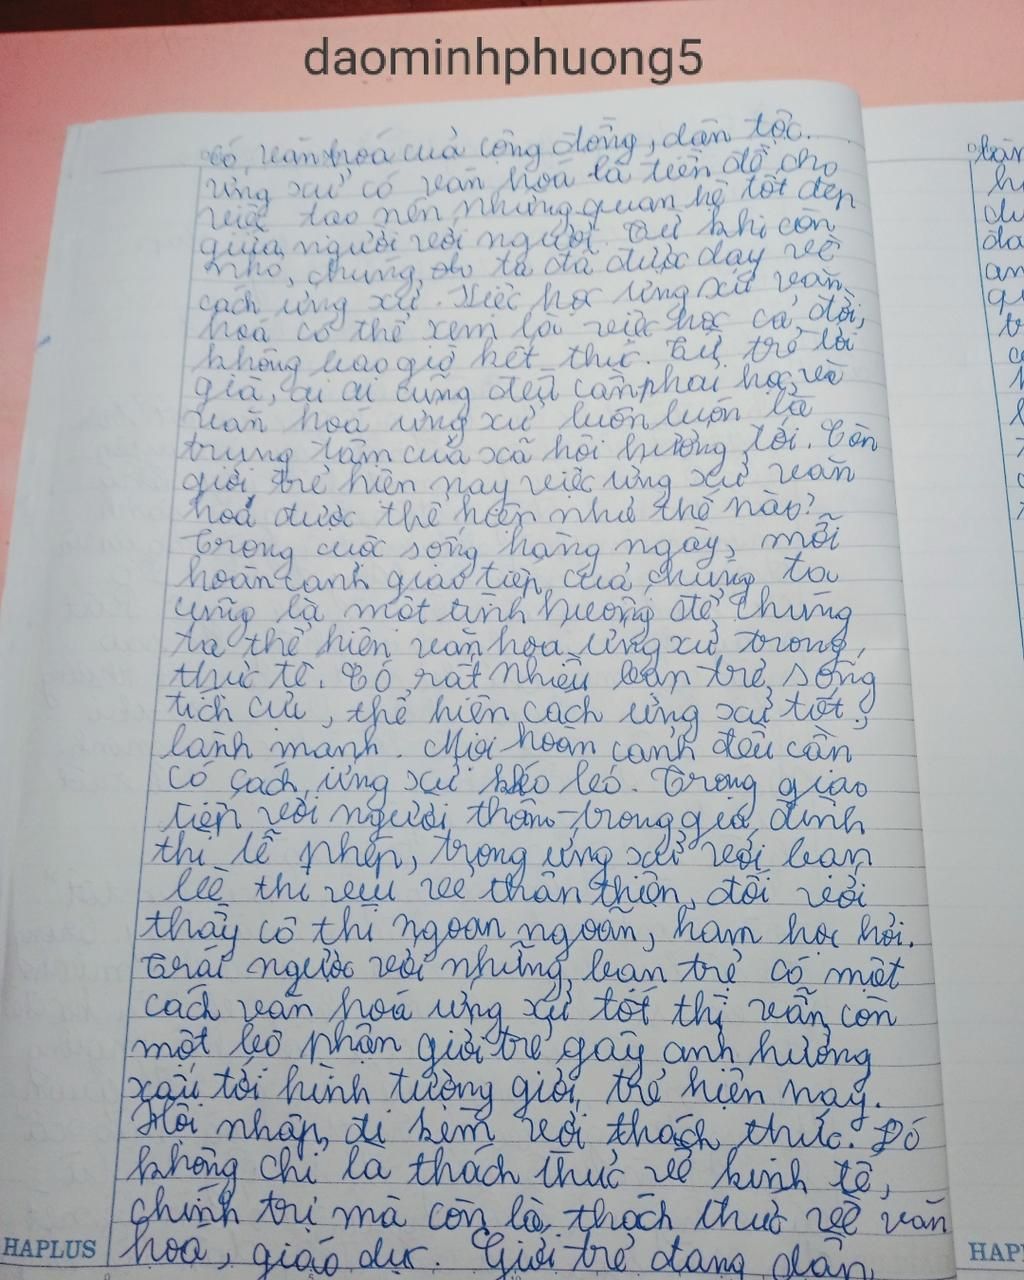 daominhphuong5
có văn hoá của cộng đồng, dân tộc.
ứng xử có văn hoá là tiền đề cho
việc tạo nên những quan hệ tốt đẹp
giữa người với người. Từ khi còn
nhỏ, chúng ta đã được dạy về
cách ứng xử. Việc học ứng xử văn
hoá có thể xem là việc học cả đời,
không bao giờ kết thúc. Từ trẻ tới
già, ai ai cũng đều cần phải học và
văn hoá ứng xử luôn luôn là
trung tâm của xã hội hướng tới. Còn
giới trẻ hiện nay việc ứng xử văn
hoá được thể hiện như thế nào?
Trong cuộc sống hàng ngày, mỗi
hoàn cảnh giao tiếp của chúng ta
cũng là một tình huống để chúng
ta thể hiện văn hoá ứng xử trong
thực tế. Có rất nhiều bạn trẻ sống
tích cực, thể hiện cách ứng xử tốt,
lành mạnh. Mọi hoàn cảnh đều cần
có cách ứng xử khéo léo. Trong giao
tiếp với người thân trong gia đình
thì lễ phép, trong ứng xử với bạn
bè thì vui vẻ thân thiện, đối với
thầy cô thì ngoan ngoãn, ham học hỏi.
Trái ngược với những bạn trẻ có một
cách văn hoá ứng xử tốt thì vẫn còn
một bộ phận giới trẻ gây ảnh hưởng
xấu tới hình tượng giới trẻ hiện nay.
Hội nhập đi kèm với thách thức. Đó
không chỉ là thách thức về kinh tế,
chính trị mà còn là thách thức về văn
hoá, giáo dục. Giới trẻ đang dần
HAPLUS